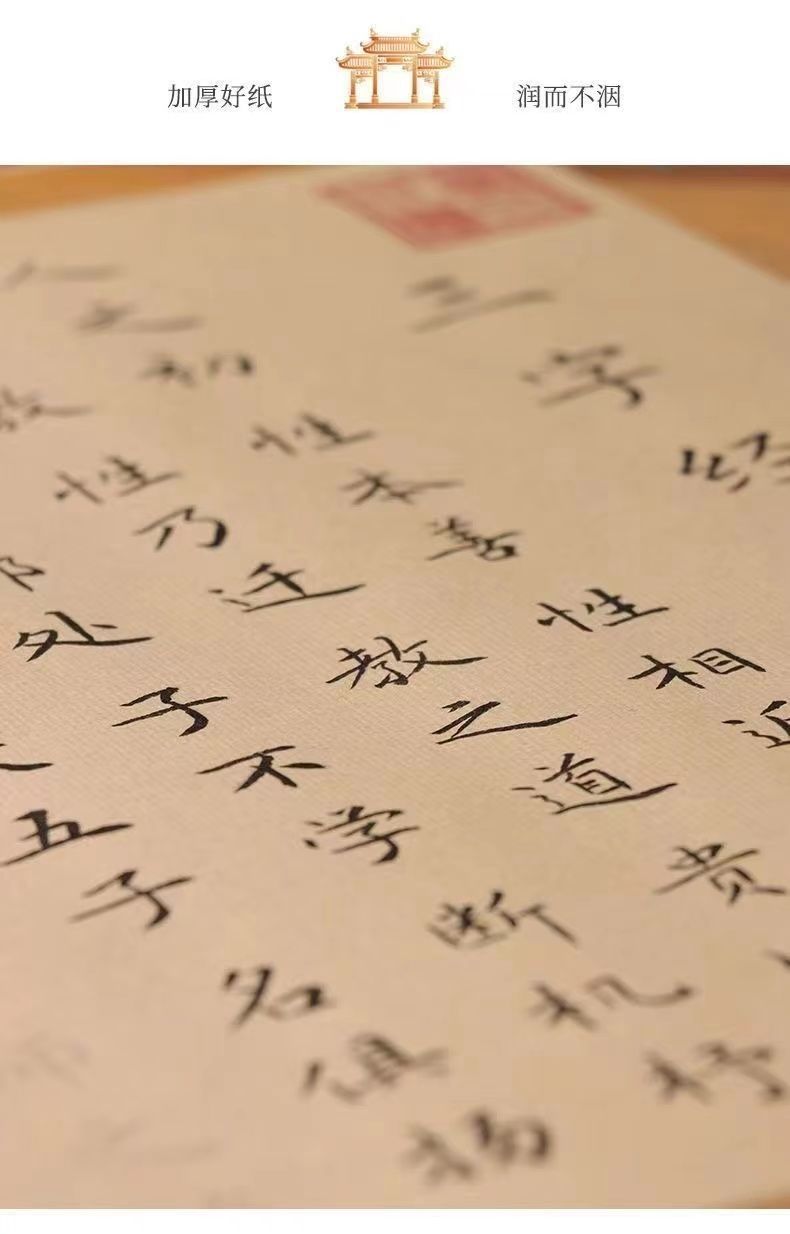 加厚好纸
润而不洇
三字经
人之初性本善性相近
教性乃迁教之道贵
处子不学断机杼
五子名俱扬